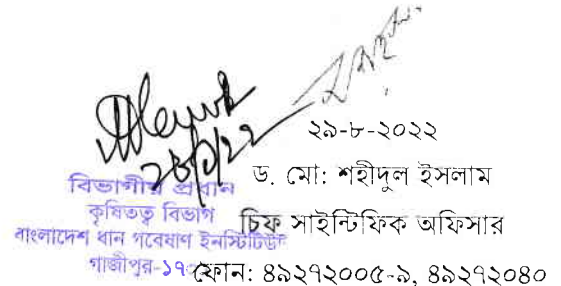 ২৯-৮-২০২২
ড. মো: শহীদুল ইসলাম
চিফ সাইন্টিফিক অফিসার
ফোন: ৪৯২৭২০০৫-৯, ৪৯২৭২০৪০
২৮/৮/২২
বিভাগীয় প্রধান
কৃষিতত্ত্ব বিভাগ
বাংলাদেশ ধান গবেষণা ইনস্টিটিউট
গাজীপুর-১৭